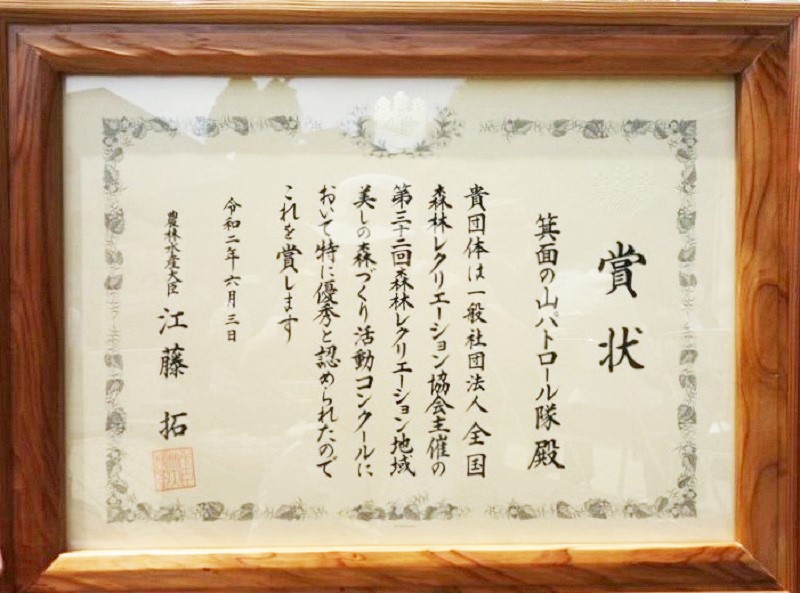 賞状
箕面の山パトロール隊 殿
貴団体は一般社団法人全国
森林レクリエーション協会主催の
第三十二回森林レクリエーション地域
美しの森づくり活動コンクールに
おいて特に優秀と認められたので
これを賞します
令和二年六月三日
農林水産大臣 江藤 拓